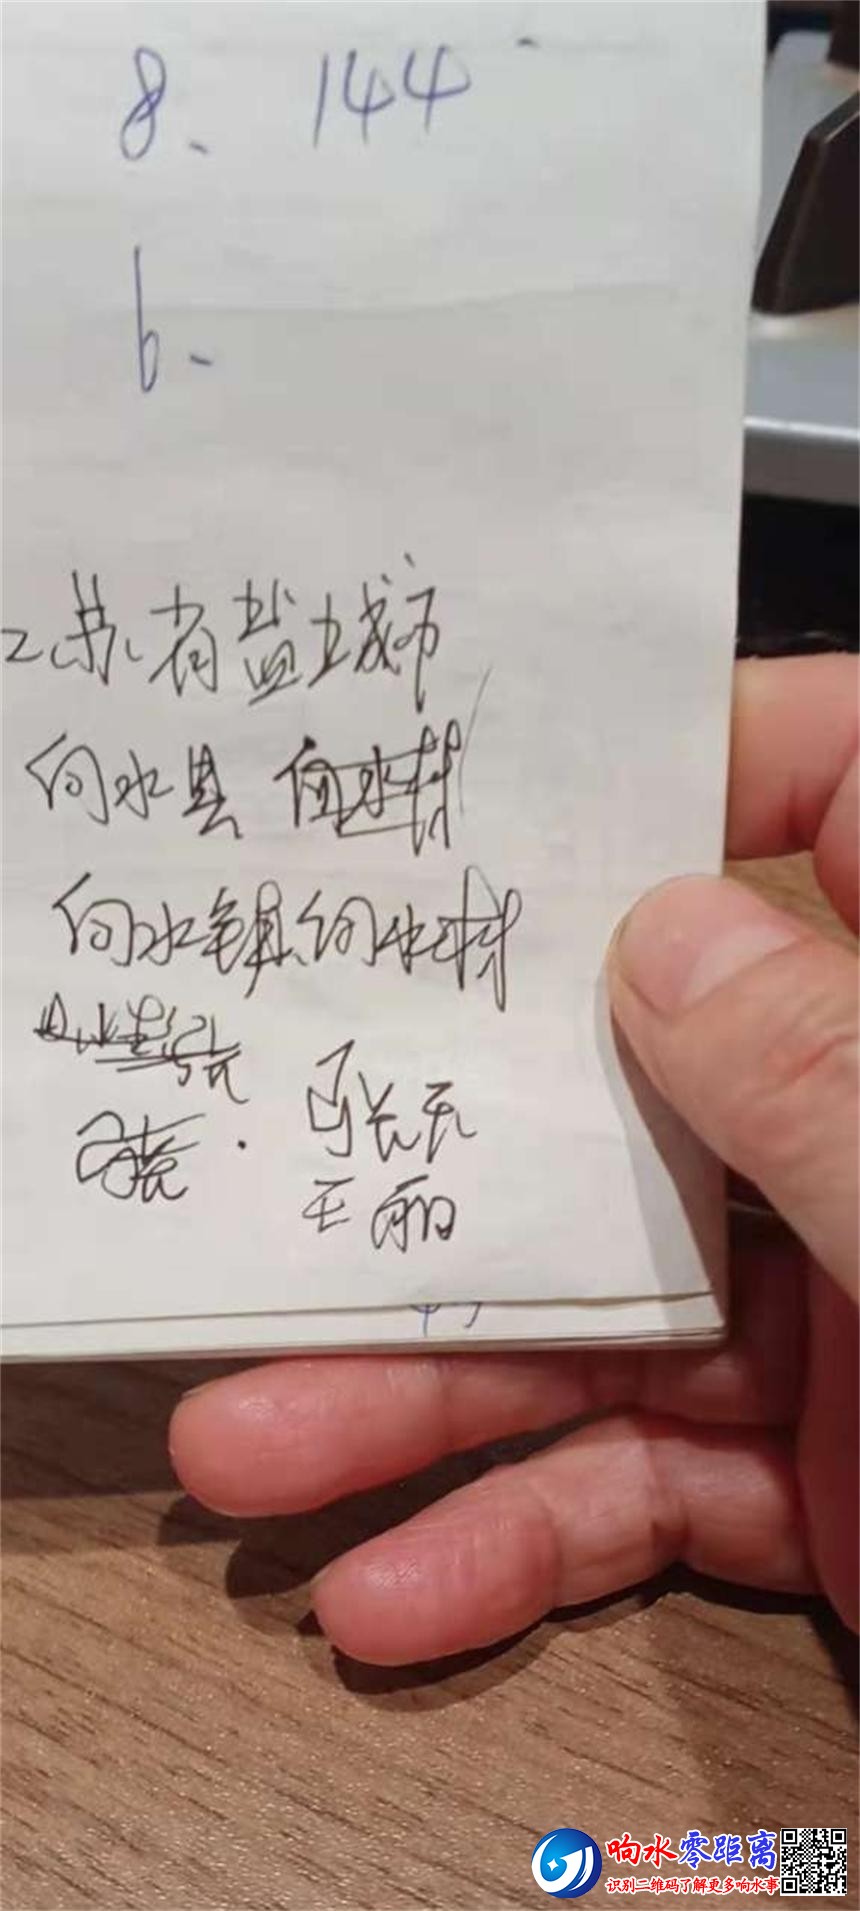 8、 144
6、
江苏省盐城市
向水县 向水村
向水镇向水村
张
王丽
响水零距离
识别二维码了解更多响水事